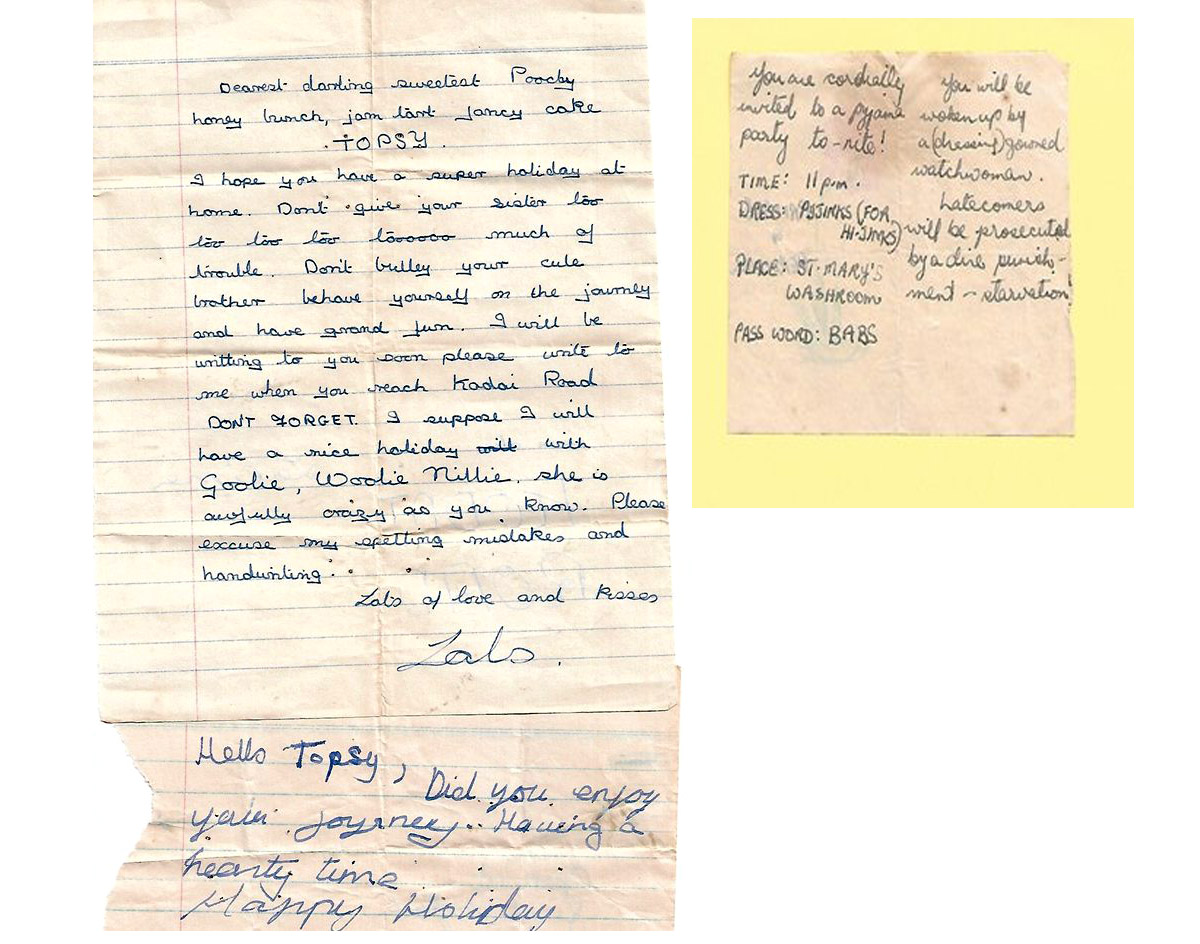 Dearest darling sweetest Poochy
honey bunch, jam tart fancy cake
.TOPSY.
I hope you have a super holiday at
home. Don't give your sister too
too too too toooooo much of
trouble. Don't bulley your cute
brother behave yourself on the journey
and have grand fun. I will be
writting to you soon please write to
me when you reach Kodai Road
DON'T FORGET. I suppose I will
have a nice holiday will with
Goolie, Woolie Nillie. she is
awfully crazy as you know. Please
excuse my spetting mistakes and
handwriting
Lots of love and kisses
Lals.
Hello Topsy,
Did you enjoy
your journey. Having a
hearty time
Happy Holiday
You are cordially
invited to a pyjama
party to-nite!
TIME: 11 p.m.
DRESS: PYJINKS (FOR
HI-JINKS)
PLACE: ST. MARY'S
WASHROOM
PASS WORD: BABS
You will be
woken up by
a (dressing) gowned
watchwoman.
Latecomers
will be prosecuted
by a dire punish-
ment - starvation!